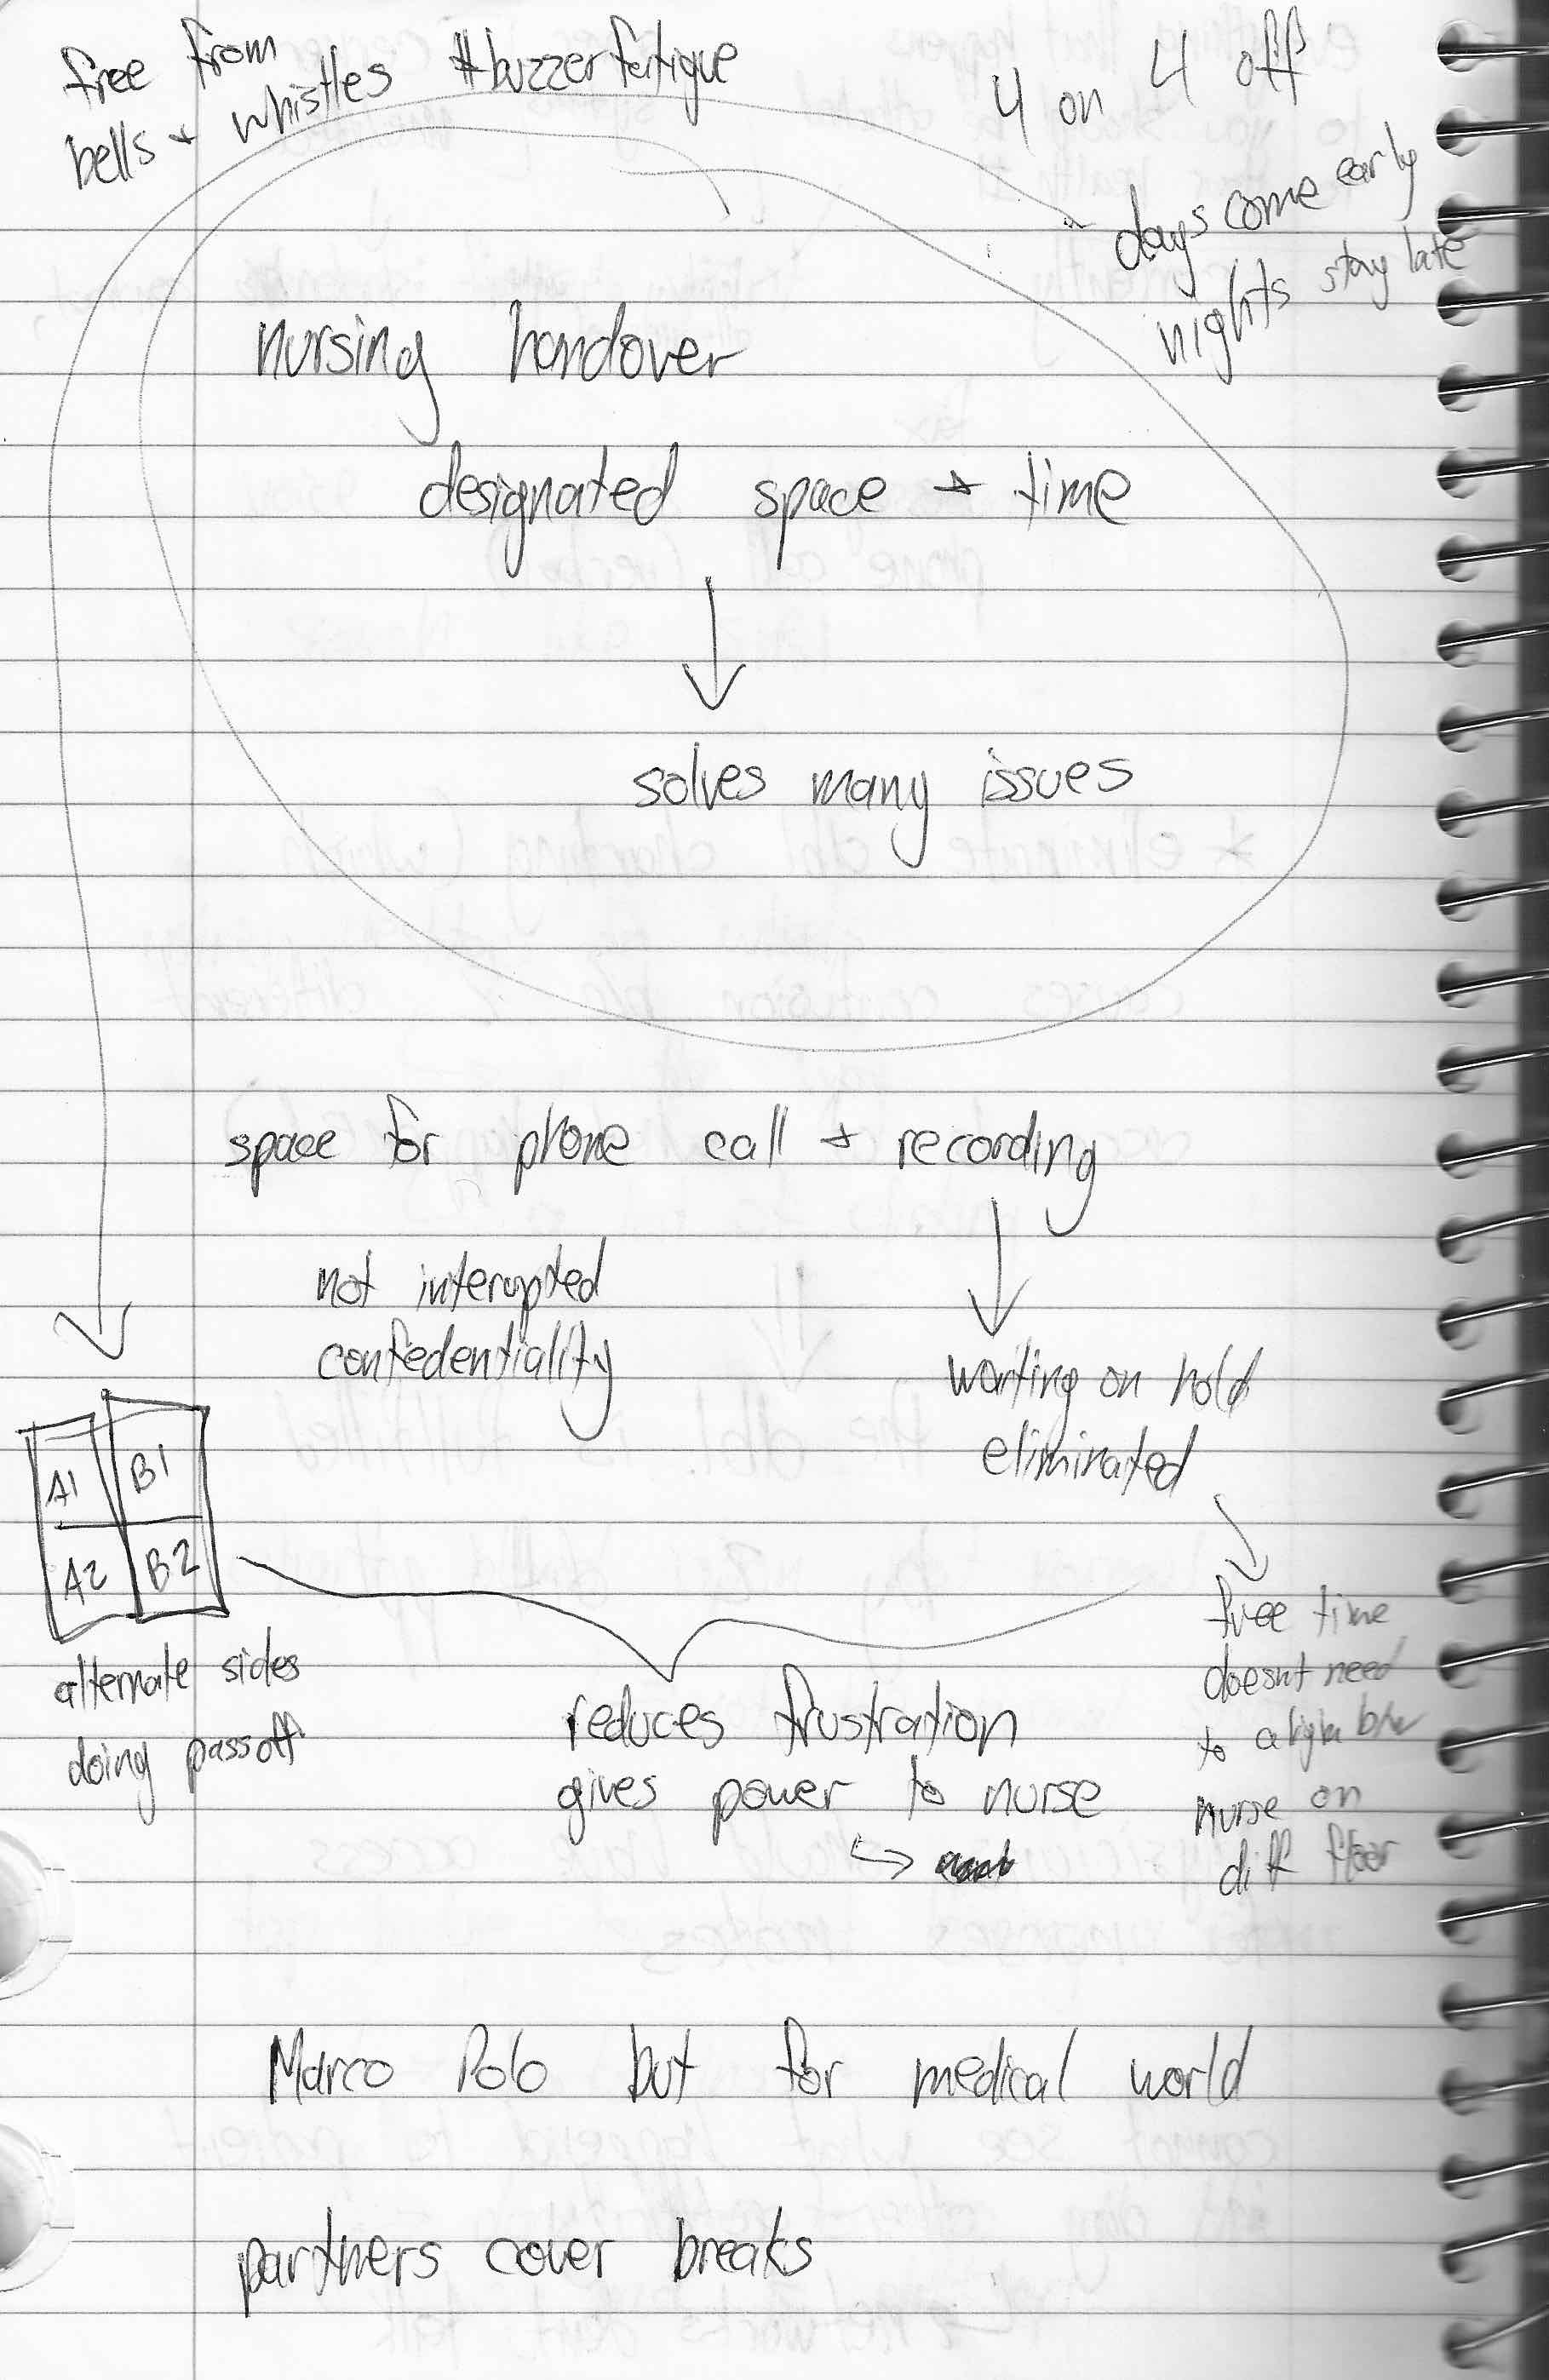 free from
bells + whistles #buzzerfatigue
4 on 4 off
days come early
nights stay late
nursing handover
designated space + time
solves many issues
space for phone call + recording
not interupted
confedentiality
waiting on hold
eliminated
A1 B1
A2 B2
alternate sides
doing passoff
free time
doesnt need
to align b/w
nurse on
diff floor
reduces frustration
gives power to nurse
Marco Polo but for medical world
partners cover breaks